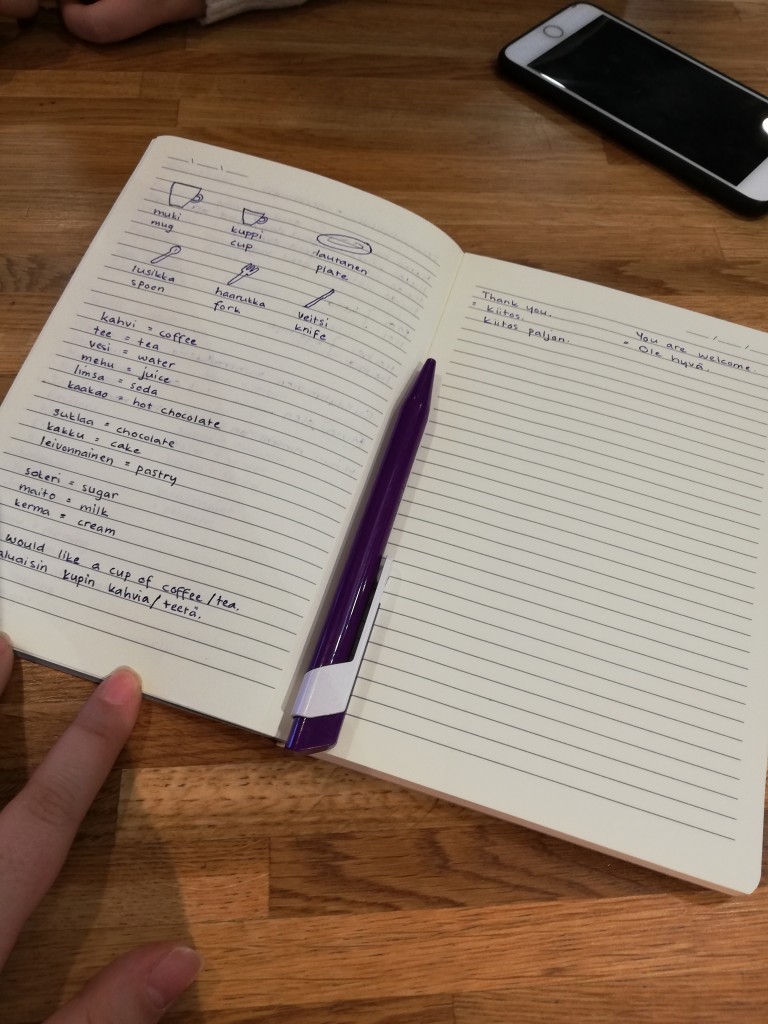 muki
mug
kuppi
cup
lautanen
plate
lusikka
spoon
haarukka
fork
veitsi
knife
kahvi = coffee
tee = tea
vesi = water
mehu = juice
limsa = soda
kaakao = hot chocolate
suklaa = chocolate
kakku = cake
leivonnainen = pastry
sokeri = sugar
maito = milk
kerma = cream
would like a cup of coffee/tea.
aluaisin kupin kahvia/teetä.
Thank you.
= Kiitos.
Kiitos paljon.
You are welcome
= Ole hyvä.